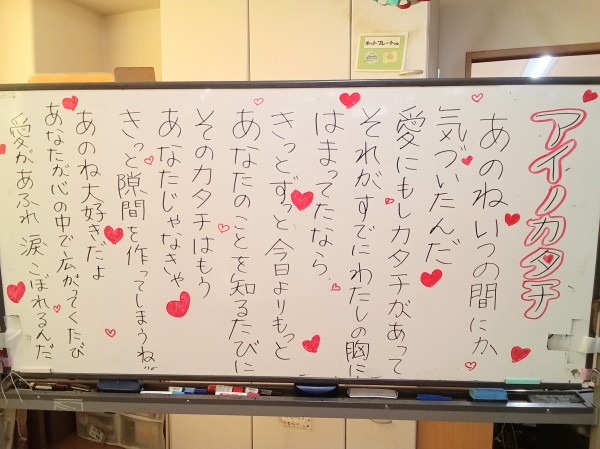 アイノカタチ
あのねいつの間にか
気づいたんだ
愛にもしカタチがあって
それがすでにわたしの胸に
はまってたなら
きっとずっと今日よりもっと
あなたのことを知るたびに
そのカタチはもう
あなたじゃなきゃ
きっと隙間を作ってしまうね
あのね大好きだよ
あなたが心の中で広がってくたび
愛があふれ 涙こぼれるんだ
ホットプレート